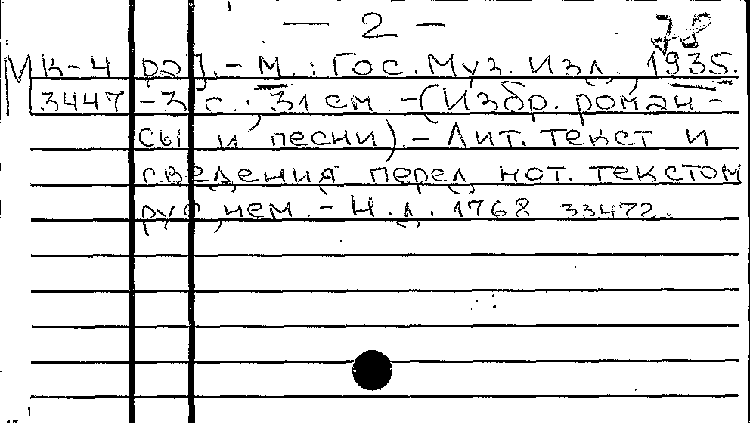 — 2 —
78
МК-4 ра]. – М.: Гос. Муз. Изд, 1935.
3447 – 3 с.; 31 см. – (Избр. роман-
сы и песни) – Лит. текст и
сведения перед нот. текстом
рус, нем. – Н.д. 1768 33472.